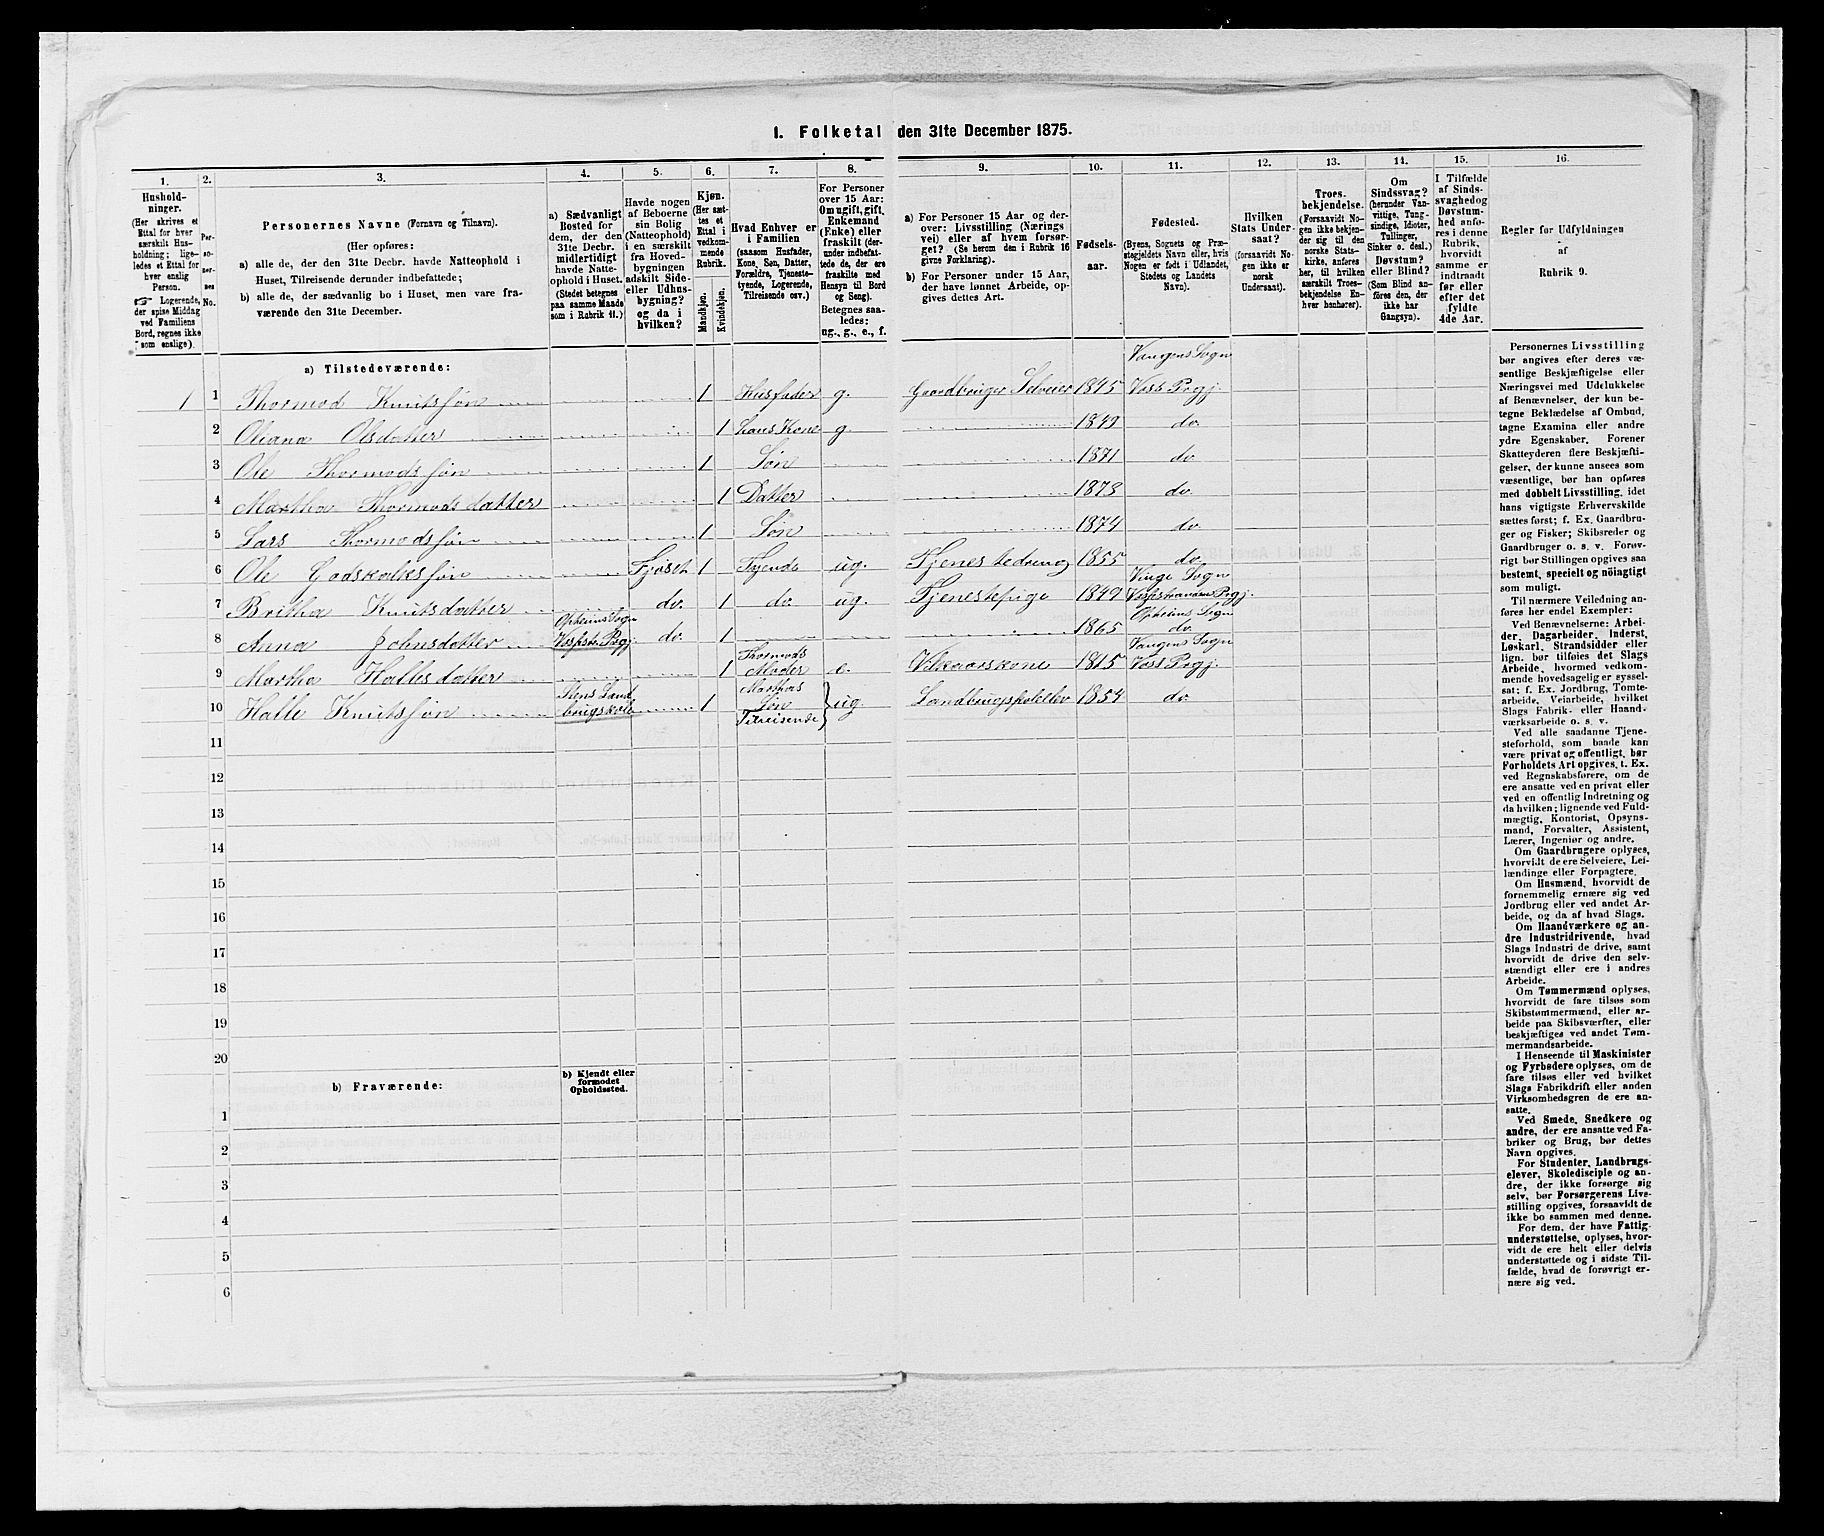 1. Folketal den 31te December 1875.
1.
Hushold-
ninger.
(Her skrives et
Ettal for hver
særskilt Hus-
holdning; lige-
ledes et Ettal for
hver enslig
Person.
☞ Logerende,
der spise Middag
ved Familiens
Bord, regnes ikke
som enslige).
2.
Per-
so-
ner-
nes
No.
3.
Personernes Navne (Fornavn og Tilnavn).
(Her opføres:
a) alle de, der den 31te Decbr. havde Natteophold i
Huset, Tilreisende derunder indbefattede;
b) alle de, der sædvanlig bo i Huset, men vare fra-
værende den 31te December.
4.
a) Sædvanligt
Bosted for
dem, der den
31te Decbr.
midlertidigt
havde Natte-
ophold i Huset.
(Stedet betegnes
paa samme Maade
som i Rubrik 11.)
5.
Havde nogen
af Beboerne
sin Bolig
(Natteophold)
i en særskilt
fra Hoved-
bygningen
adskilt Side-
eller Udhus-
bygning?
og da i
hvilken?
6.
Kjøn.
(Her sæt-
tes et
Ettal i
vedkom-
mende
Rubrik.
Mandkjøn.
Kvindekjøn.
7.
Hvad Enhver er
i Familien
(saasom Husfader,
Kone, Søn, Datter,
Forældre, Tjeneste-
tyende, Logerende,
Tilreisende osv.)
8.
For Personer
over 15 Aar:
Om ugift, gift,
Enkemand
(Enke) eller
fraskilt (der-
under indbefat-
tede de, der ere
fraskilte med
Hensyn til Bord
og Seng).
Betegnes saa-
ledes:
ug., g., e., f.
9.
a) For Personer 15 Aar og der-
over: Livsstilling (Nærings
vei) eller af hvem forsør-
get? (Se herom den i Rubrik 16
givne Forklaring).
b) For Personer under 15 Aar,
der have lønnet Arbeide, op-
gives dettes Art.
10.
Fødsels-
aar.
11.
Fødested.
(Byens, Sognets og Præ-
stegjeldets Navn eller, hvis
Nogen er født i Udlandet,
Stedets og Landets
Navn).
12.
Hvilken
Stats Under-
saat?
(forsaavidt No-
gen ikke er
norsk
Undersaat).
13.
Troes-
bekjendelse.
(Forsaavidt No-
gen ikke bekjen-
der sig til den
norske Stats-
kirke, anføres
her, til hvilken
særskilt Troes-
bekjendelse En-
hver henhører).
14.
Om
Sindssvag?
(herunder Van-
vittige, Tung-
sindige, Idioter,
Tullinger,
Sinker o. desl.)
Døvstum?
eller Blind?
(Som Blind an-
føres den, der
ikke har
Gangsyn).
15.
I Tilfælde
af Sinds-
svaghed og
Døvstum-
hed anfø-
res i denne
Rubrik,
hvorvidt
samme er
indtraadt
før eller
efter det
fyldte
4de Aar.
16.
Regler for Udfyldningen
af
Rubrik 9.
a) Tilstedeværende:
Vangens Sogn
1 1 Thormod Knutssøn 1 Husfader g. Gaardbruger Selveier 1845 Voss Prgj.
2 Oliana Olsdatter 1 hans Kone g. 1849 do.
3 Ole Thormodssøn 1 Søn 1871 do
4 Martha Thormodsdatter 1 Datter 1873 do.
5 Lars Thormodssøn 1 Søn 1874 do.
6 Ole Godskalkssøn Fjøset 1 Tyende ug. Tjenestedreng 1855 do.
Vinge Sogn
7 Britha Knutsdatter do. 1 do. ug. Tjenestepige 1849 Vossestranden Prgj.
Opheims Sogn Opheims Sogn
8 Anna Johnsdatter Vossestr. Prgj. do 1 1865 do.
Thormods Vangens Sogn
9 Martha Hallesdatter 1 Moder e. Vilkaarskone 1815 Voss Prgj.
Stens Land Marthas
10 Halle Knutssøn brugskole 1 Søn ug. Landbrugsskoleelev 1854 do.
Tilreisende
11
12
13
14
15
16
17
18
19
20
b) Fraværende:
b) Kjendt eller
formodet
Opholdssted.
1
2
3
4
5
6
Personernes Livsstilling
bør angives efter deres væ-
sentlige Beskjæftigelse eller
Næringsvei med Udelukkelse
af Benævnelser, der kun be-
tegne Beklædelse af Ombud,
tagne Examina eller andre
ydre Egenskaber. Forener
Skatteyderen flere Beskjæfti-
gelser, der kunne ansees som
væsentlige, bør han opføres
med dobbelt Livsstilling, idet
hans vigtigste Erhvervskilde
sættes først; f. Ex. Gaardbru-
ger og Fisker; Skibsreder og
Gaardbruger o. s. v. Forøv-
rigt bør Stillingen opgives saa
bestemt, specielt og nöiagtigt
som muligt.
Til nærmere Veiledning an-
føres her endel Exempler:
Ved Benævnelserne: Arbei-
der, Dagarbeider, Inderst,
Løskarl, Strandsidder eller
lign. bør tilføies det Slags
Arbeide, hvormed vedkom-
mende hovedsagelig er syssel-
sat; f. Ex. Jordbrug, Tomte-
arbeide, Veiarbeide, hvilket
Slags Fabrik- eller Haand-
værksarbeide o. s. v.
Ved alle saadanne Tjene-
steforhold, som baade kan
være privat og offentligt, bør
Forholdets Art opgives, t. Ex.
ved Regnskabsførere, om de
ere ansatte ved en privat eller
ved en offentlig Indretning og
da hvilken; lignende ved Fuld-
mægtig, Kontorist, Opsyns-
mand, Forvalter, Assistent,
Lærer, Ingeniør og andre.
Om Gaardbrugere oplyses,
hvorvidt de ere Selveiere, Lei-
lændinge eller Forpagtere.
Om Husmænd, hvorvidt de
fornemmelig ernære sig ved
Jordbrug eller ved andet Ar-
beide, og da af hvad Slags.
Om Haandværkere og an-
dre Industridrivende, hvad
Slags Industri de drive, samt
hvorvidt de drive den selv-
stændigt eller ere i andres
Arbeide.
Om Tømmermænd oplyses,
hvorvidt de fare tilsøs som
Skibstømmermænd, eller ar-
beide paa Skibsværfter, eller
beskjæftiges ved andet Tøm-
mermandsarbeide.
I Henseende til Maskinister
og Fyrbødere oplyses, om de
fare tilsøs eller ved hvilket
Slags Fabrikdrift eller anden
Virksomhedsgren de ere an-
satte.
Ved Smede, Snedkere og
andre, der ere ansatte ved Fa-
briker og Brug, bør dettes
Navn opgives.
For Studenter, Landbrugs-
elever, Skoledisciple og an-
dre, der ikke forsørge sig
selv, bør Forsørgerens Livs-
stilling opgives, forsaavidt de
ikke bo sammen med denne.
For dem, der have Fattig-
understøttelse, oplyses, hvor-
vidt de ere helt eller delvis
understøttede og i sidste Til-
fælde, hvad de forøvrigt er-
nære sig ved.